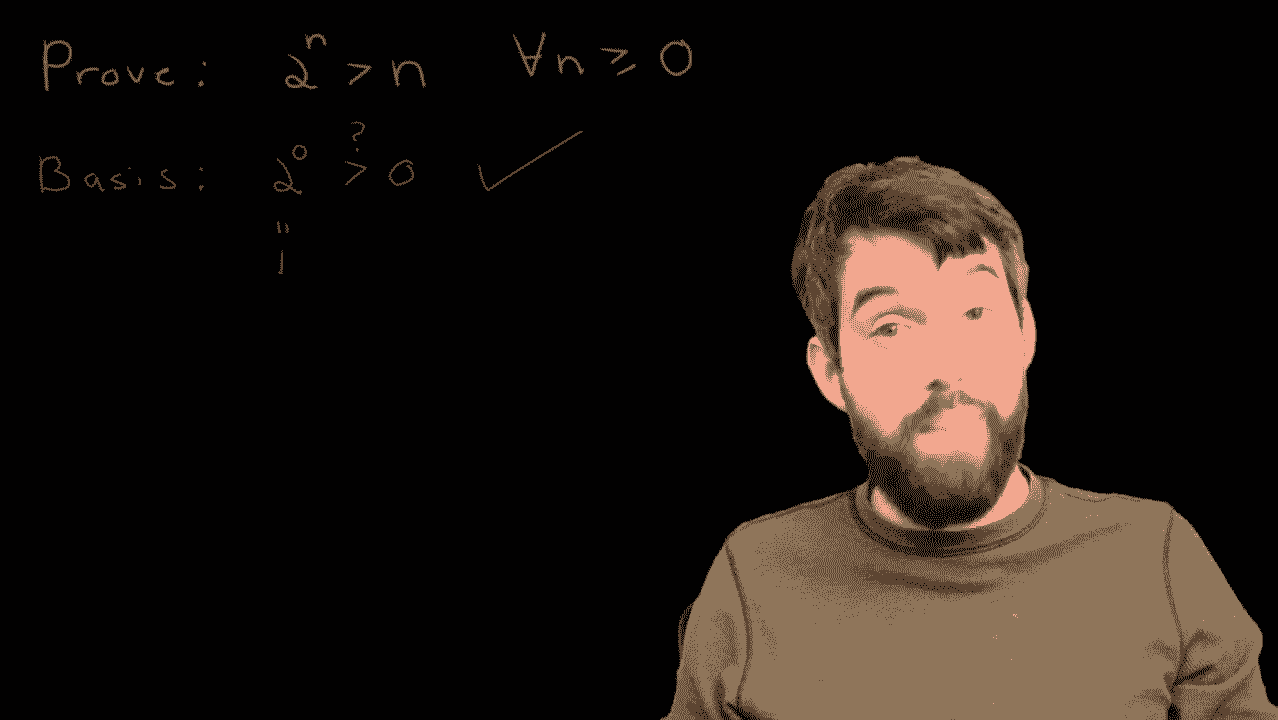 Prove: 2^n > n ∀n ≥ 0
Basis: 2^0 >^? 0 ✓
"
1